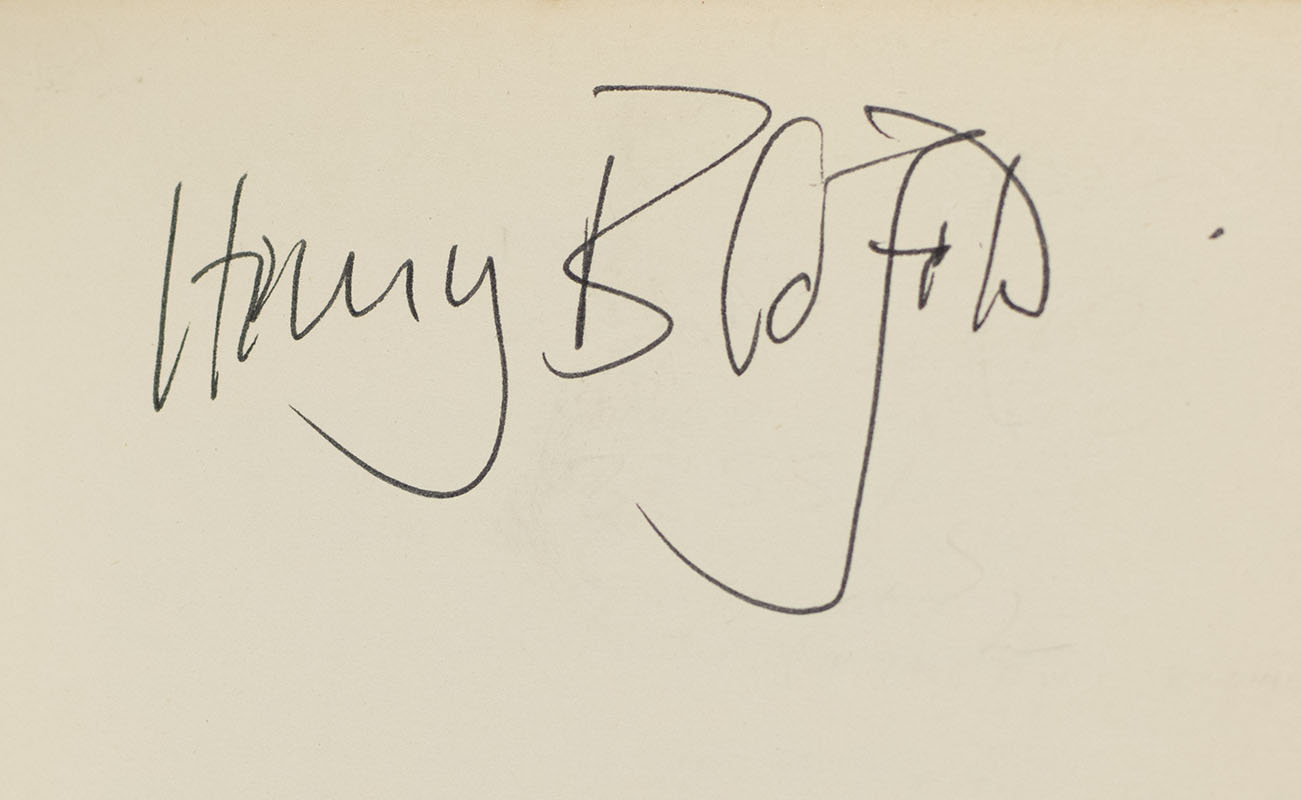 Harry Blofeld